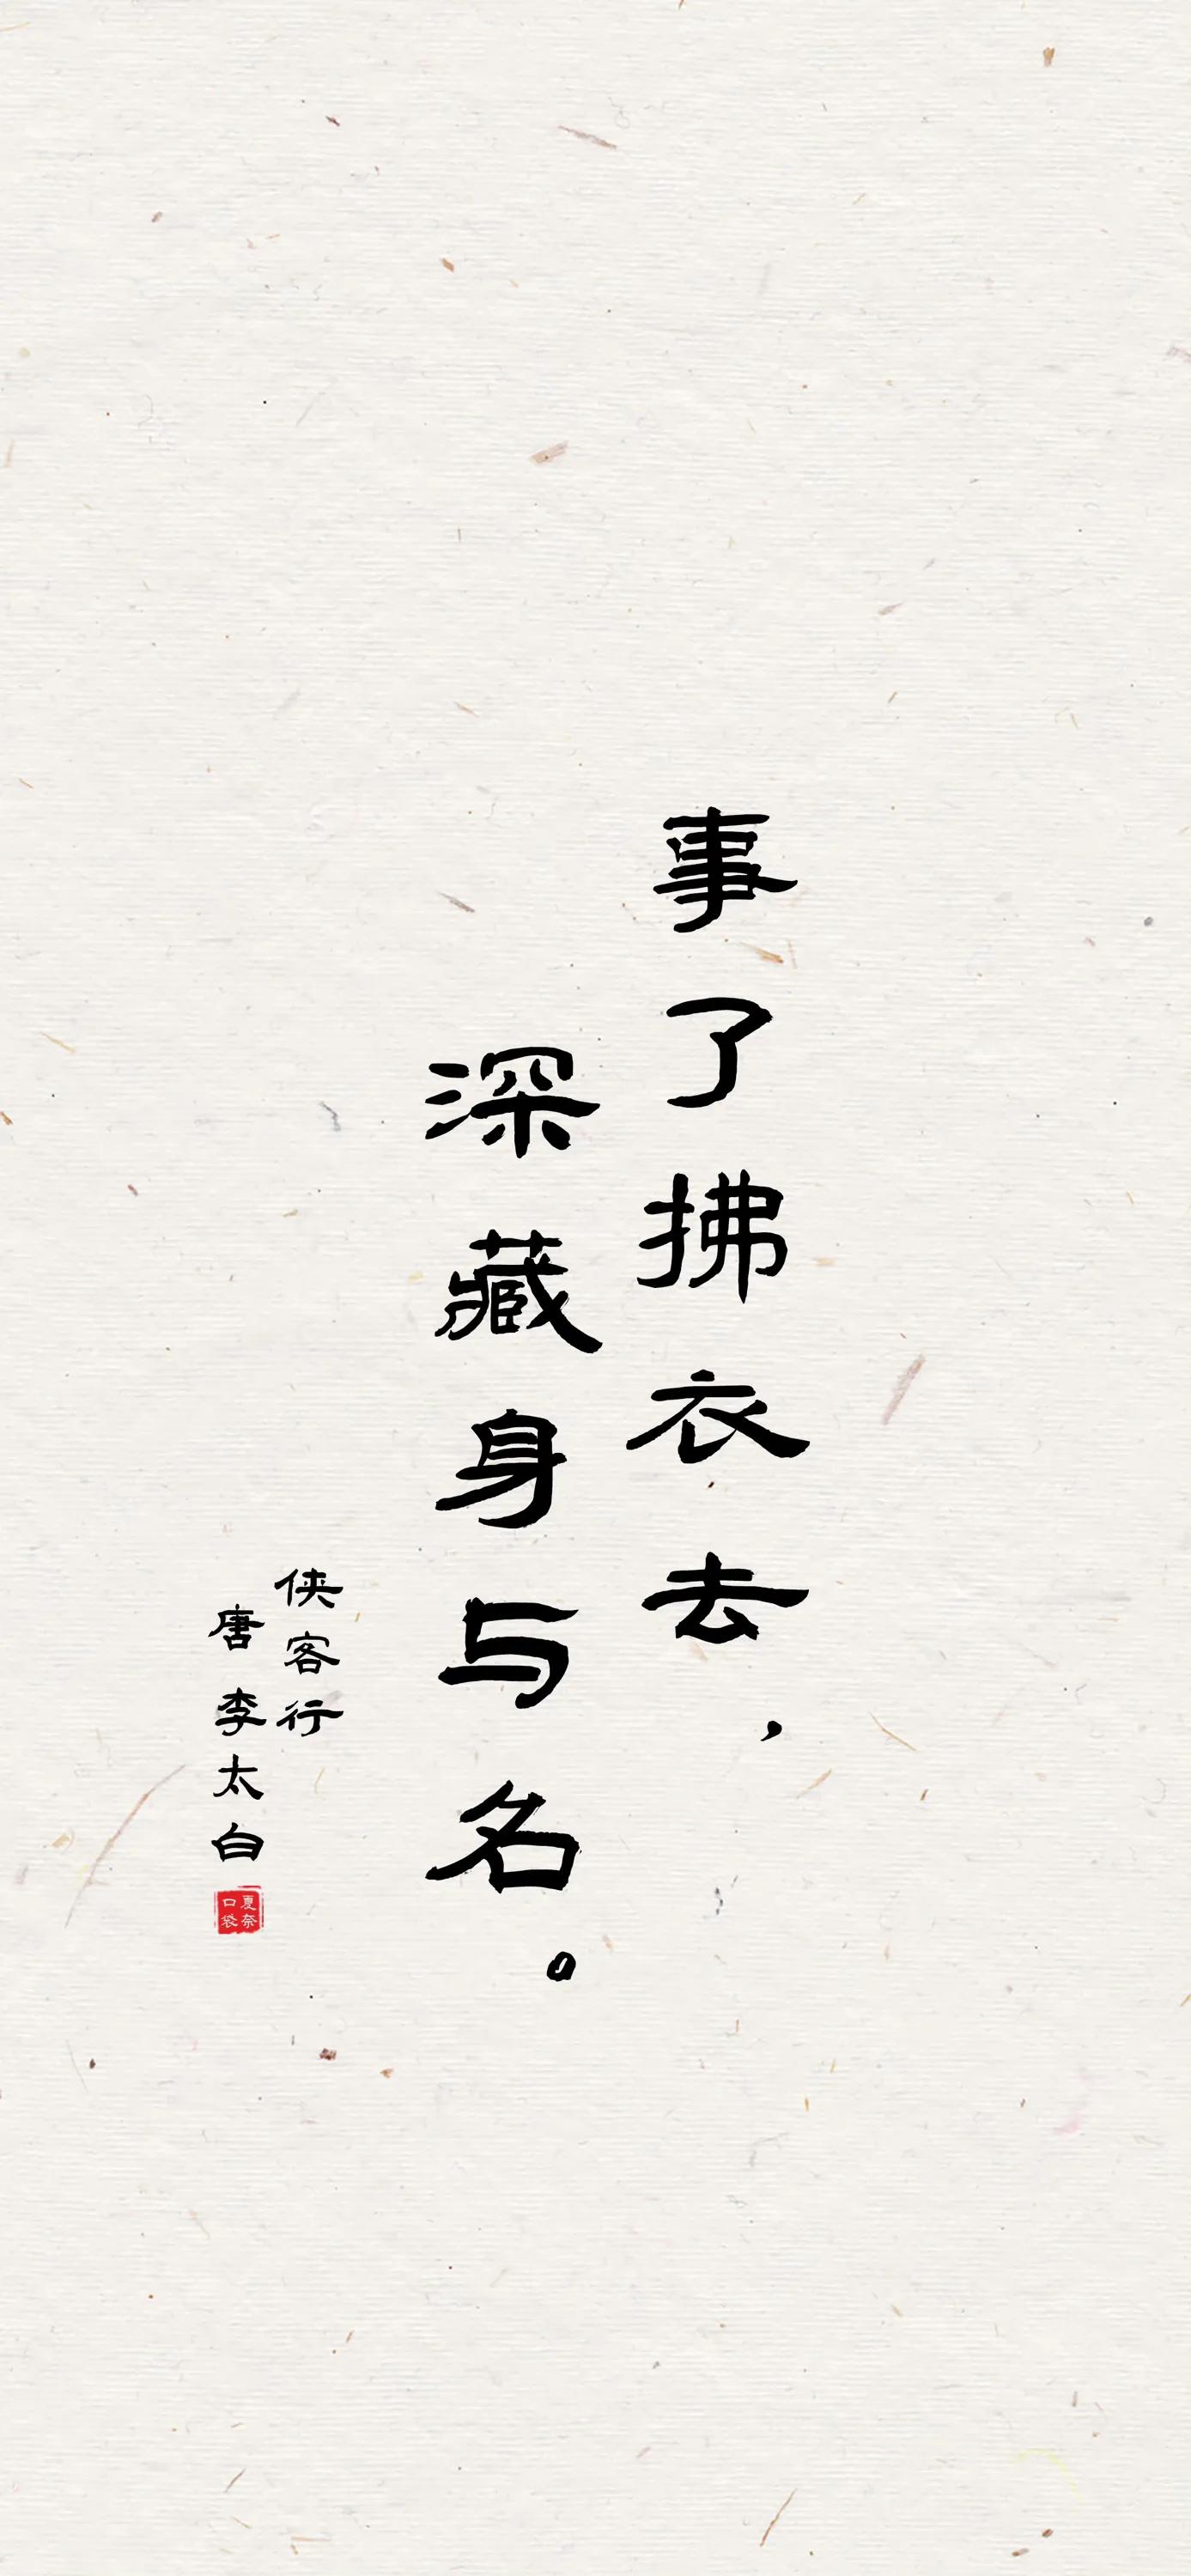 事了拂衣去，
深藏身与名。
侠客行
唐 李太白
夏奈
口袋